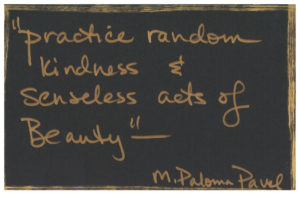 "practice random
kindness &
senseless acts of
Beauty"—
M. Paloma Pavel